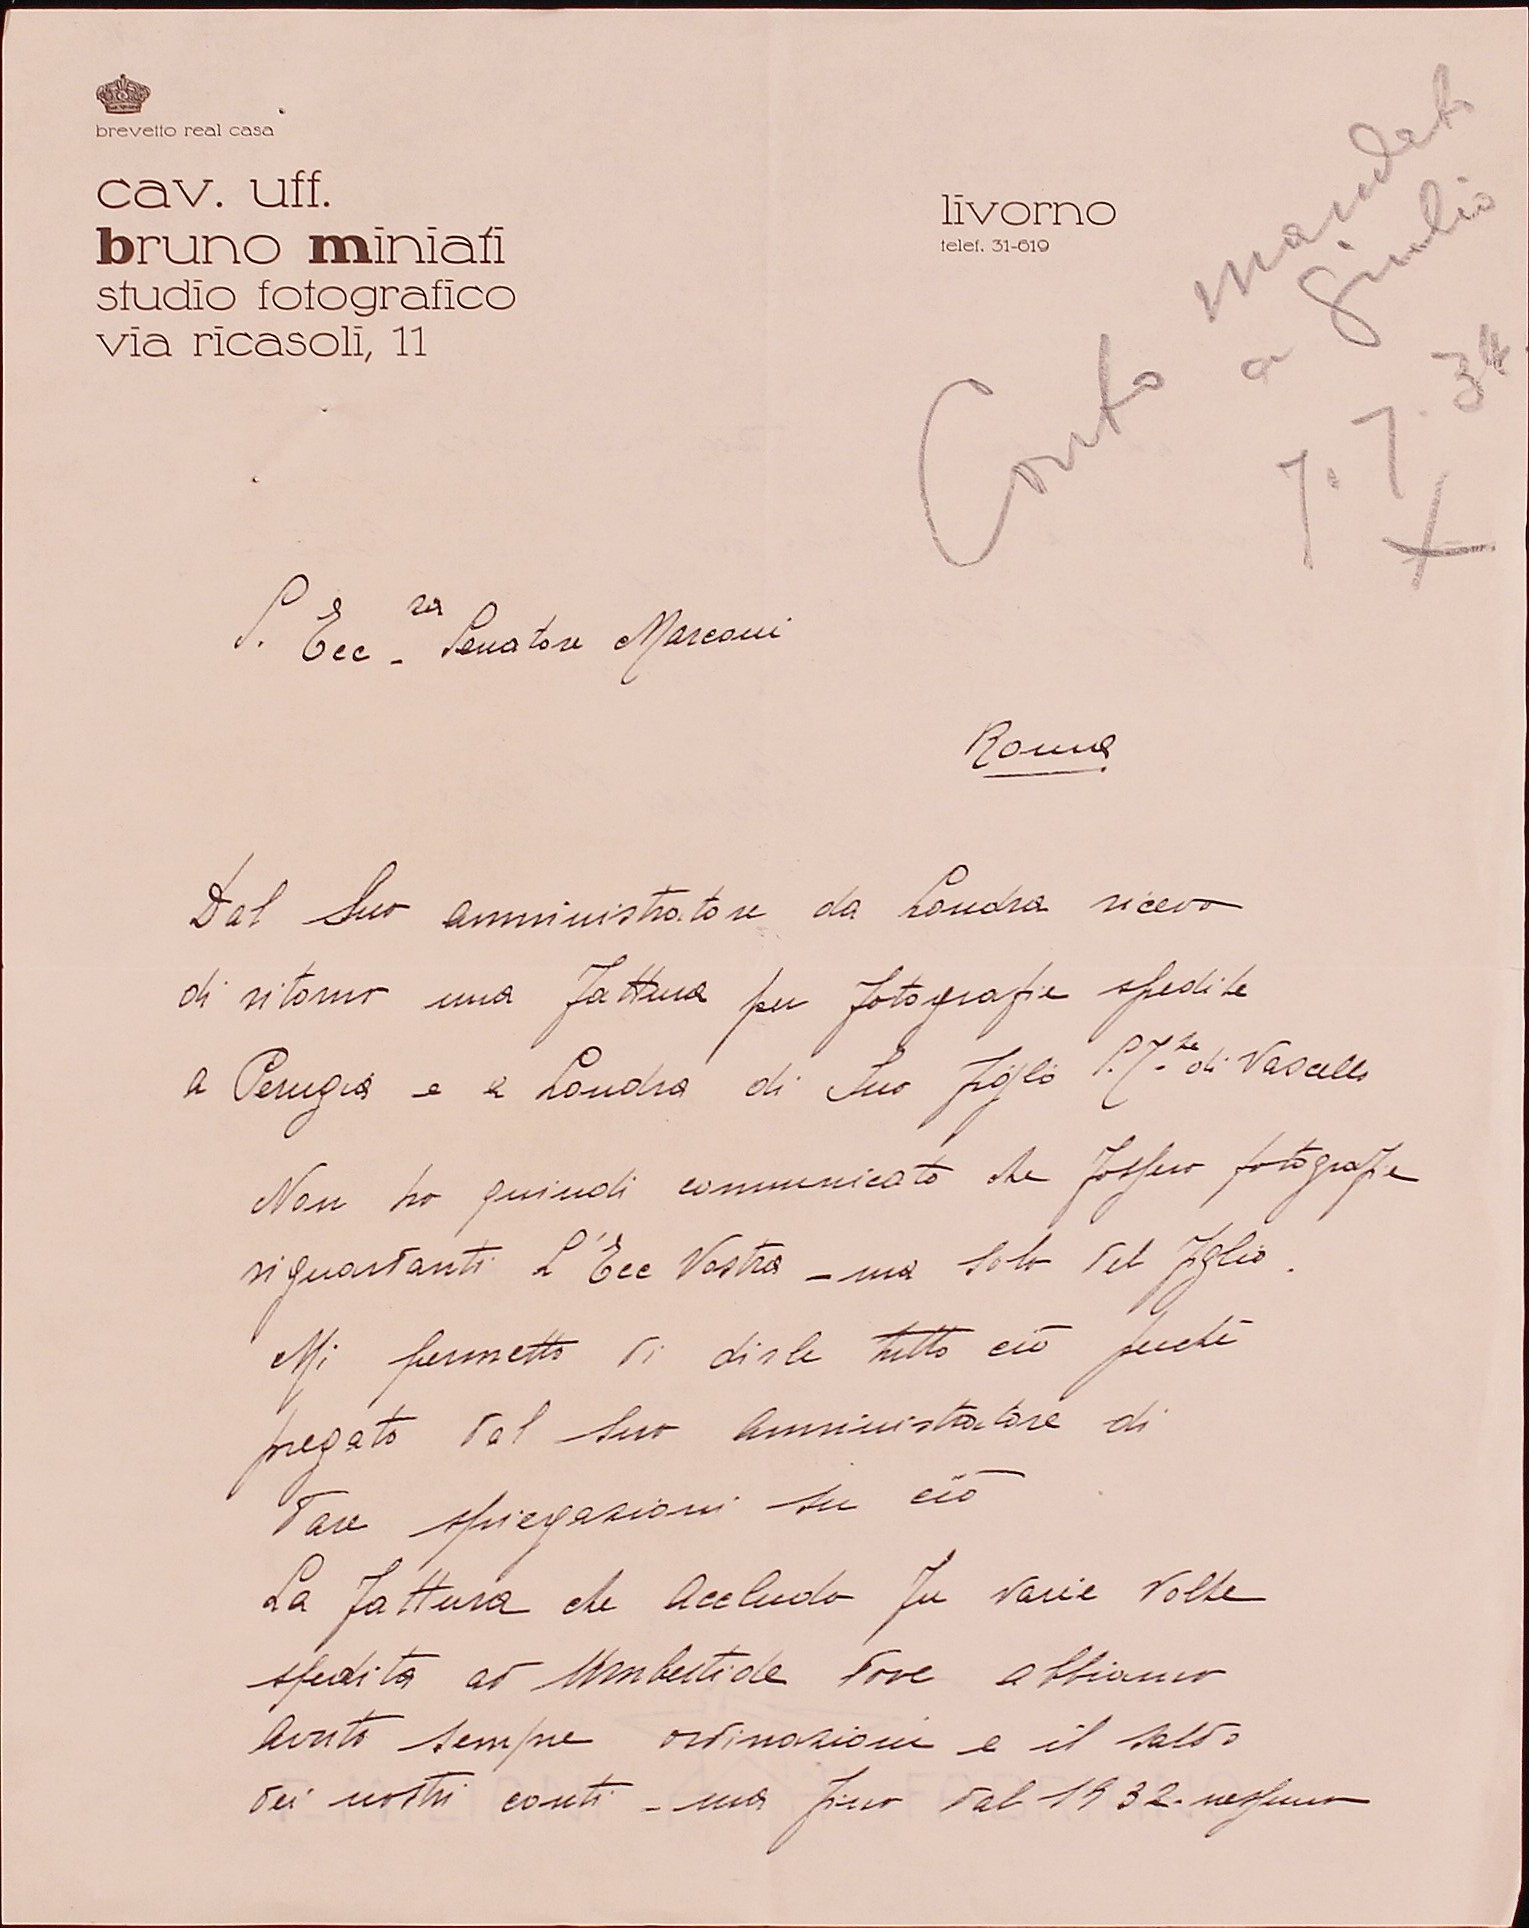 brevetto real casa
cav. uff.
bruno miniati
studio fotografico
via ricasoli, 11
livorno
telef. 31-619
Conto mandato
a Giulio
7. 7. 34
S. Ecc.za Senatore Marconi
Roma
Dal Suo amministratore da Londra ricevo
di ritorno una fattura per fotografie spedite
a Perugia e a Londra di Suo figlio S. T.te di Vascello
Non ho quindi comunicato che fossero fotografie
riguardanti L'Ecc Vostra - ma solo del figlio.
Mi permetto di dirle tutto ciò perchè
pregato dal Suo Amministratore di
dare spiegazioni su ciò
La fattura che accludo fu varie volte
spedita ad Umbertide dove abbiamo
avuto sempre ordinazioni e il saldo
dei nostri conti - ma fino dal 1932. nessuno